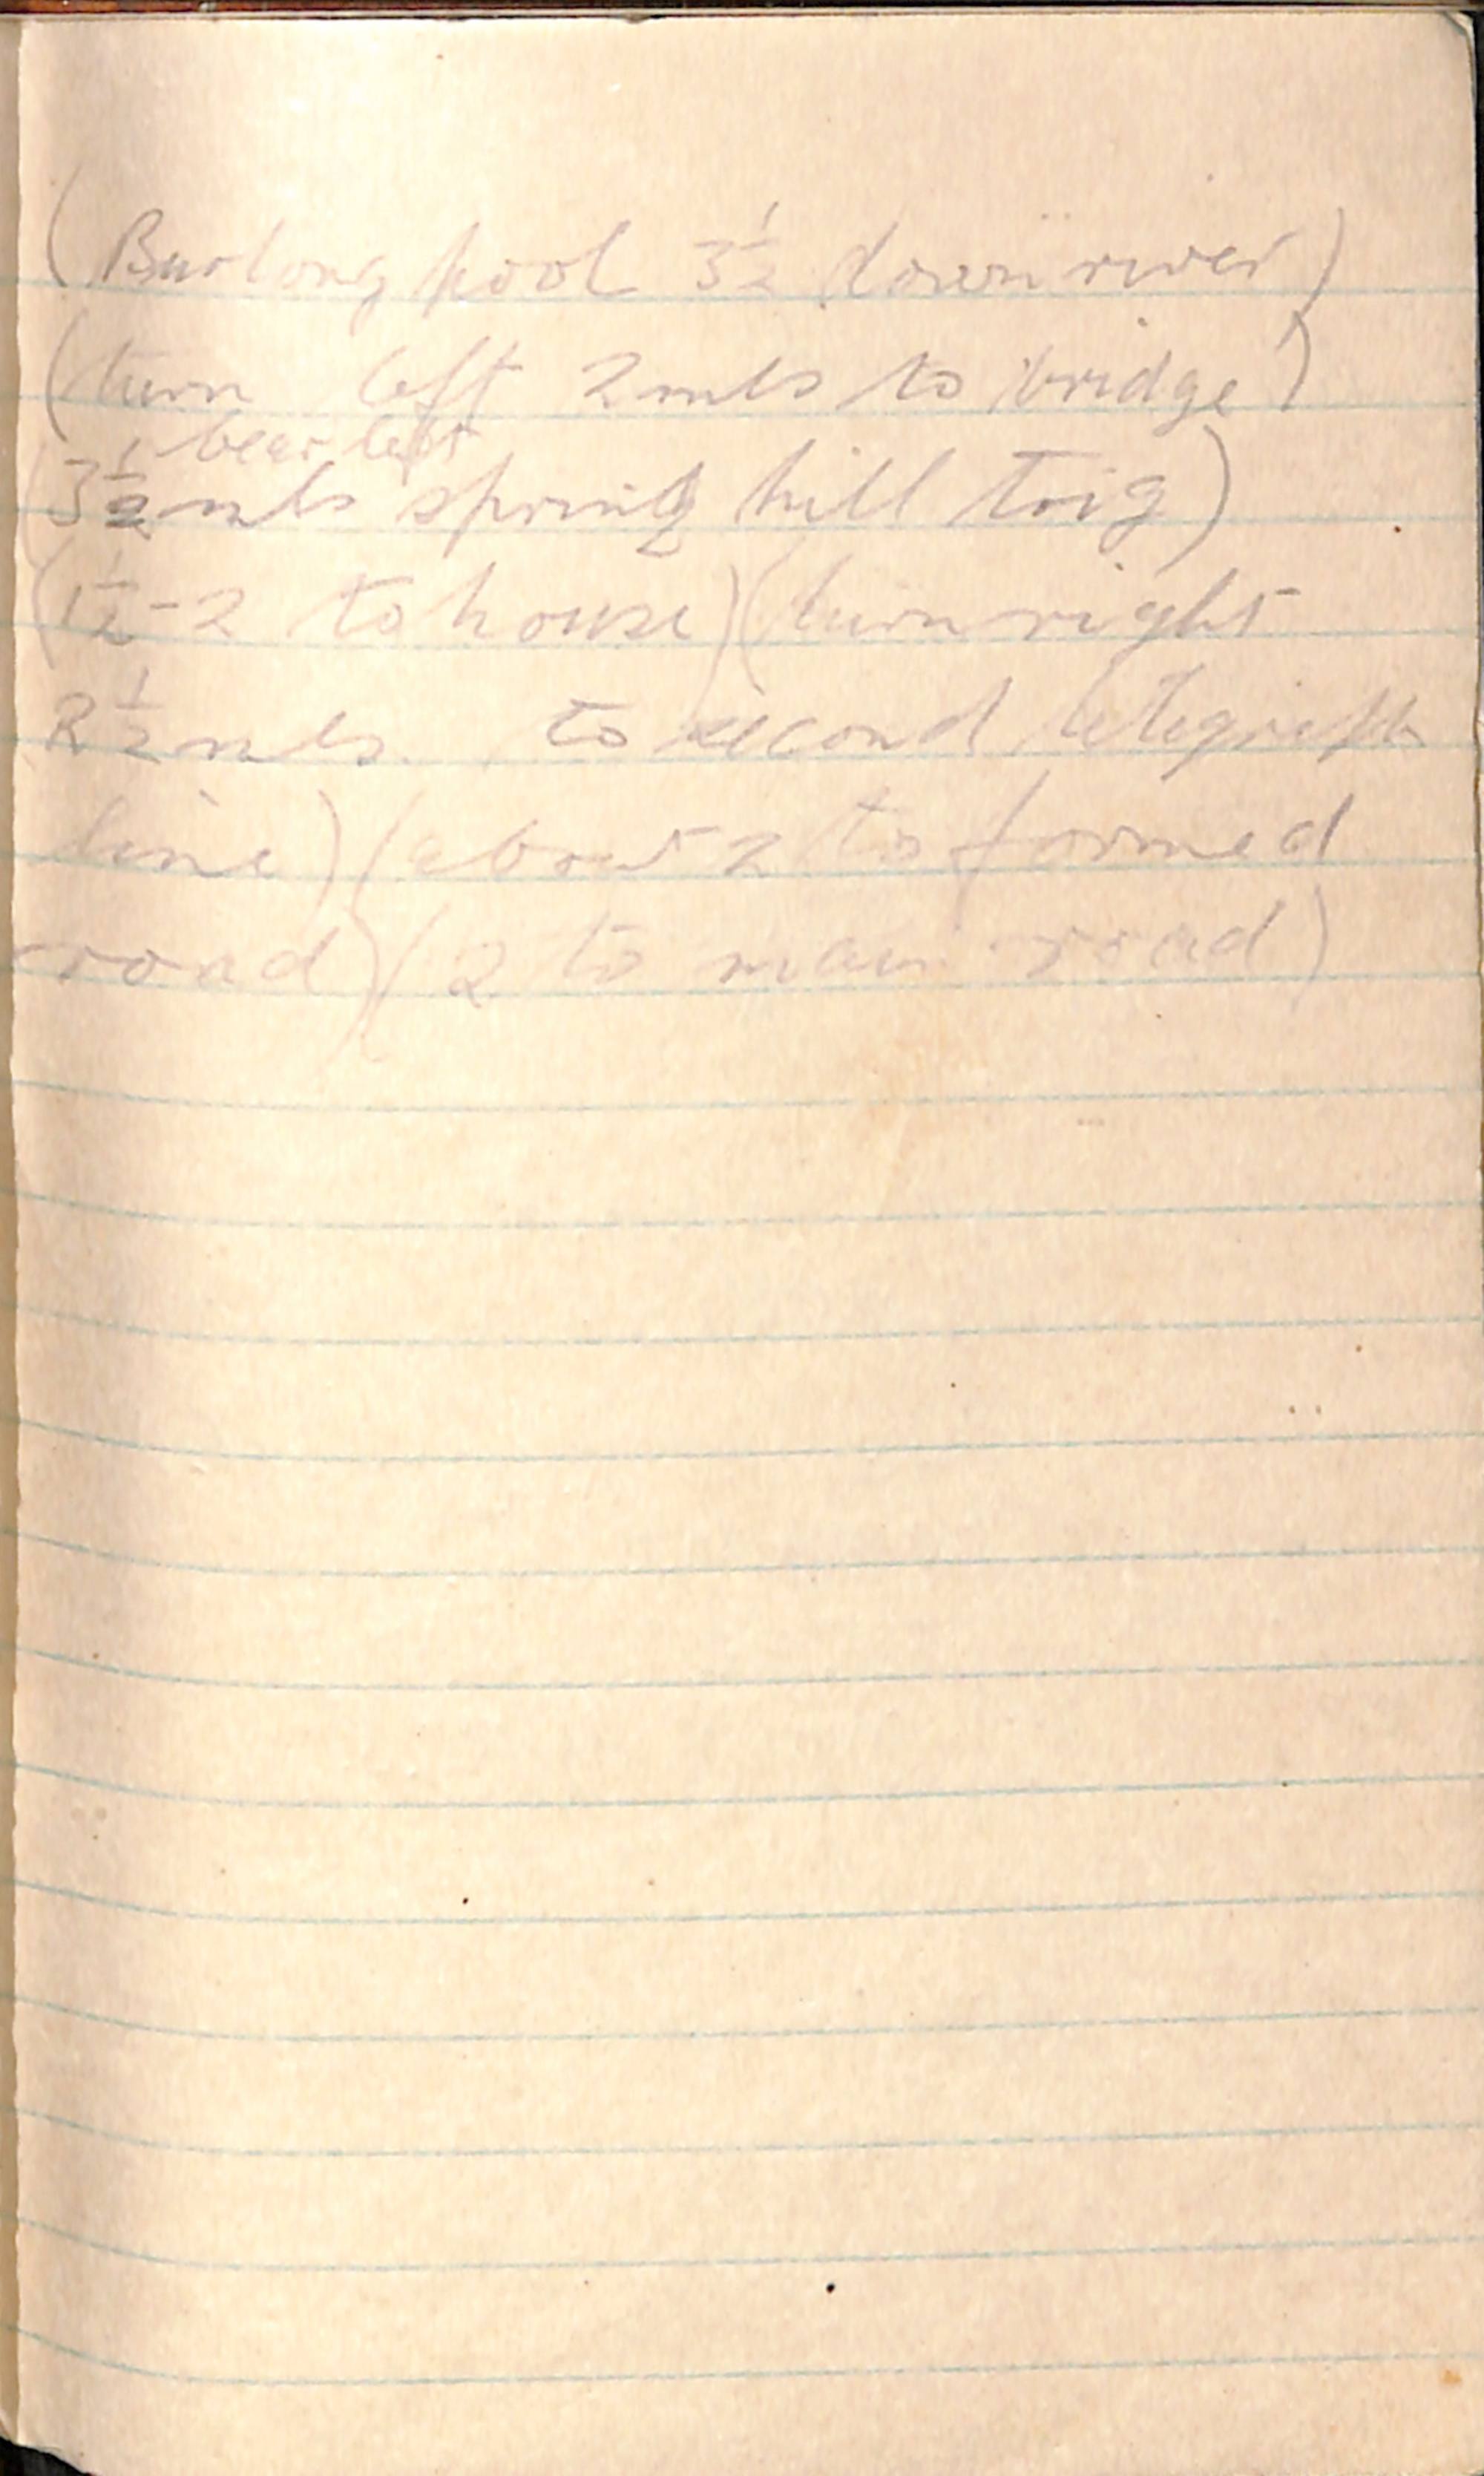 (Burlong pool 3½ down river)
(turn left 2 mls to bridge)
bear left
(3½ mls spring hill Trig)
(1½-2 to house) (turn right
2½ mls. to second telegraph
line) (about 2 to formed
road) (2 to main road)